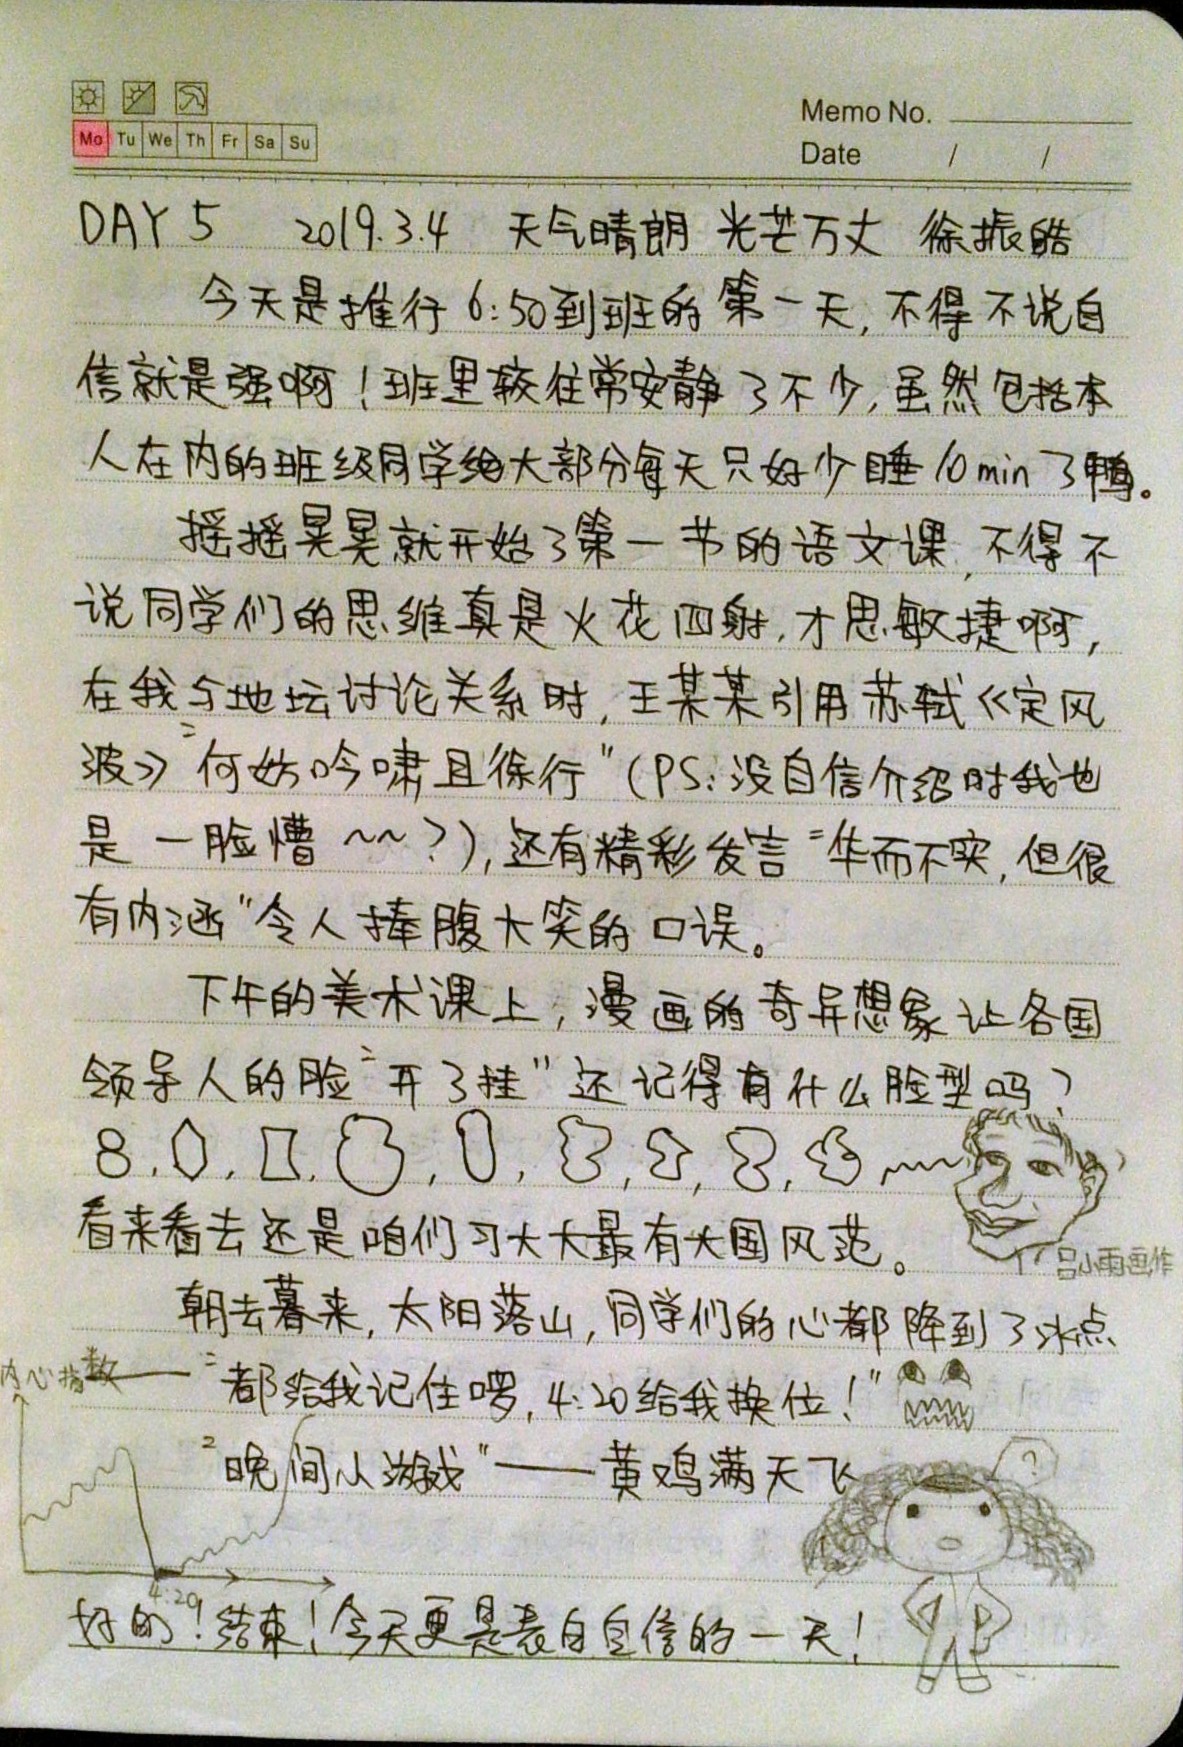 Memo No.
Mo Tu We Th Fr Sa Su
Date / /
DAY 5 2019.3.4 天气晴朗 光芒万丈 徐振皓
今天是推行6:50到班的第一天,不得不说自
信就是强啊!班里较往常安静了不少,虽然包括本
人在内的班级同学绝大部分每天只好少睡10min了鸭。
摇摇晃晃就开始了第一节的语文课,不得不
说同学们的思维真是火花四射,才思敏捷啊,
在我与地坛讨论关系时,王某某引用苏轼《定风
波》"何妨吟啸且徐行"(PS:没自信介绍时我也
是一脸懵~~?),还有精彩发言"华而不实,但很
有内涵"令人捧腹大笑的口误。
下午的美术课上,漫画的奇异想象让各国
领导人的脸"开了挂"还记得有什么脸型吗?
8
看来看去还是咱们习大大最有大国风范。
吕小雨画作
朝去暮来,太阳落山,同学们的心都降到了冰点
内心指数——"都给我记住啰,4:20给我换位!"
"晚间小游戏"——黄鸡满天飞
?
4:20
好的!结束!今天更是表白自信的一天!